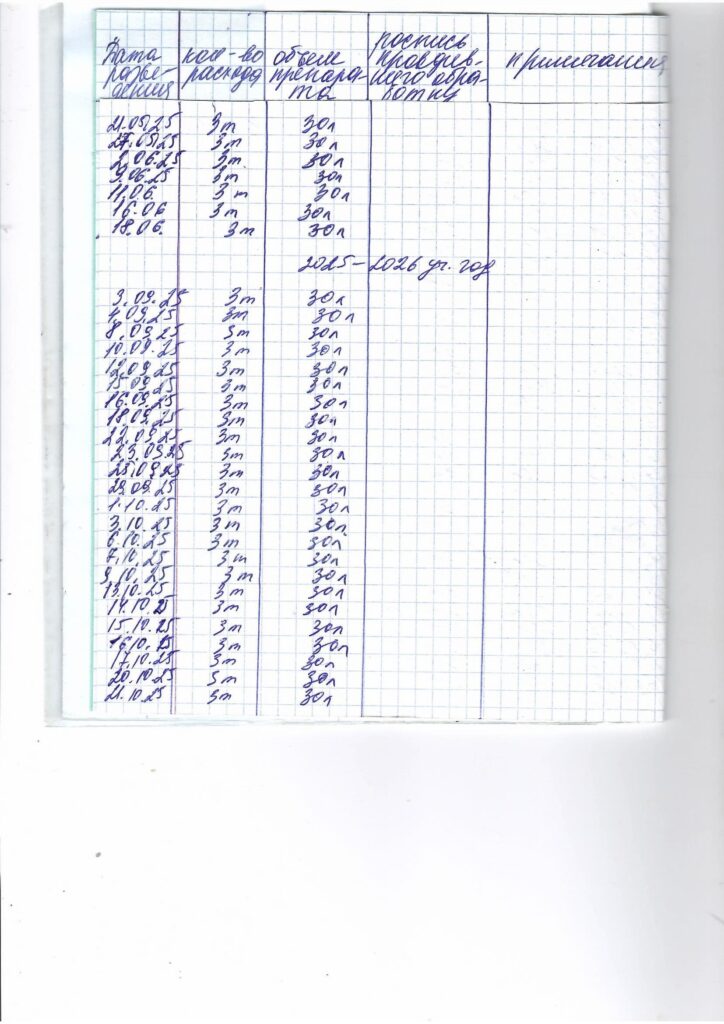 Дата разве- дения кол-во расхода объем препара- та роспись проводив- шего обра- ботку примечания
21.05.25 3т 30л
27.05.25 3т 30л
2.06.25 3т 30л
9.06.25 3т 30л
11.06. 3т 30л
16.06 3т 30л
18.06. 3т 30л
2025-2026 уч. год
3.09.25 3т 30л
4.09.25 3т 30л
8.09.25 3т 30л
10.09.25 3т 30л
12.09.25 3т 30л
15.09.25 3т 30л
16.09.25 3т 30л
18.09.25 3т 30л
22.09.25 3т 30л
23.09.25 3т 30л
25.09.25 3т 30л
29.09.25 3т 30л
1.10.25 3т 30л
3.10.25 3т 30л
6.10.25 3т 30л
7.10.25 3т 30л
9.10.25 3т 30л
13.10.25 3т 30л
14.10.25 3т 30л
15.10.25 3т 30л
16.10.25 3т 30л
17.10.25 3т 30л
20.10.25 3т 30л
21.10.25 3т 30л